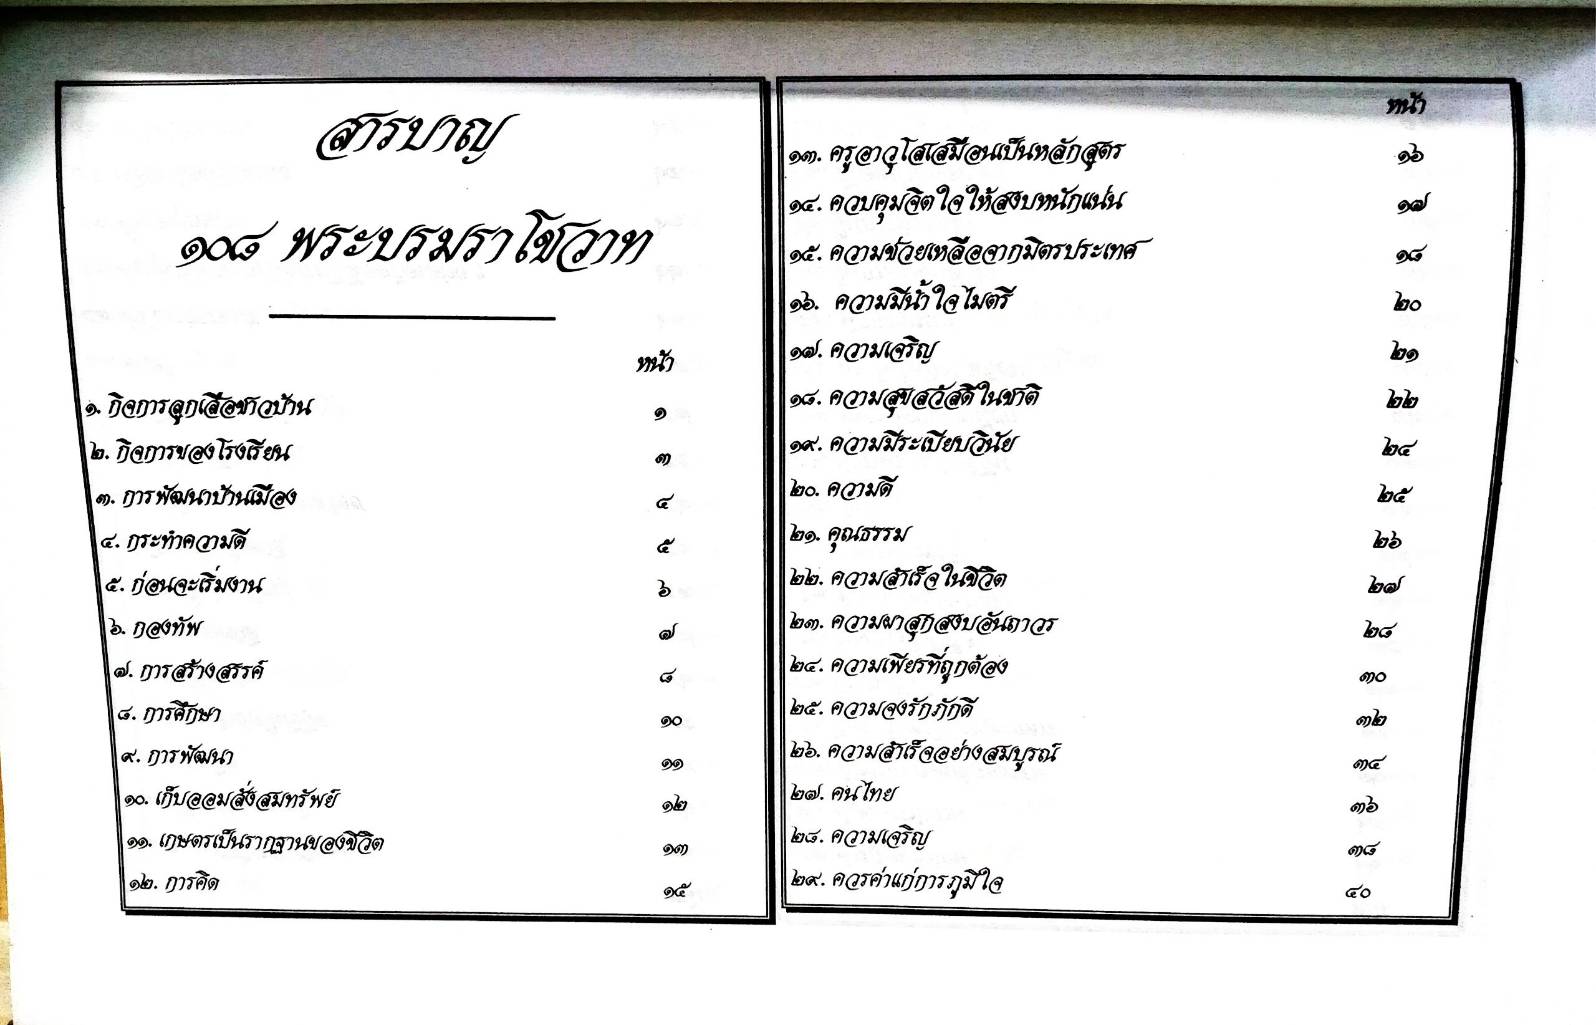 สารบาญ
๑๐๘ พระบรมราโชวาท
หน้า
๑. กิจการลูกเสือชาวบ้าน ๑
๒. กิจการของโรงเรียน ๓
๓. การพัฒนาบ้านเมือง ๔
๔. กระทำความดี ๕
๕. ก่อนจะเริ่มงาน ๖
๖. กองทัพ ๗
๗. การสร้างสรรค์ ๘
๘. การศึกษา ๑๐
๙. การพัฒนา ๑๑
๑๐. เก็บออมสั่งสมทรัพย์ ๑๒
๑๑. เกษตรเป็นรากฐานของชีวิต ๑๓
๑๒. การคิด ๑๕
หน้า
๑๓. ครูอาวุโสเสมือนเป็นหลักสูตร ๑๖
๑๔. ควบคุมจิตใจให้สงบหนักแน่น ๑๗
๑๕. ความช่วยเหลือจากมิตรประเทศ ๑๘
๑๖. ความมีน้ำใจไมตรี ๒๐
๑๗. ความเจริญ ๒๑
๑๘. ความสุขสวัสดีในชาติ ๒๒
๑๙. ความมีระเบียบวินัย ๒๔
๒๐. ความดี ๒๕
๒๑. คุณธรรม ๒๖
๒๒. ความสำเร็จในชีวิต ๒๗
๒๓. ความผาสุกสงบอันถาวร ๒๘
๒๔. ความเพียรที่ถูกต้อง ๓๐
๒๕. ความจงรักภักดี ๓๒
๒๖. ความสำเร็จอย่างสมบูรณ์ ๓๔
๒๗. คนไทย ๓๖
๒๘. ความเจริญ ๓๘
๒๙. ควรค่าแก่การภูมิใจ ๔๐